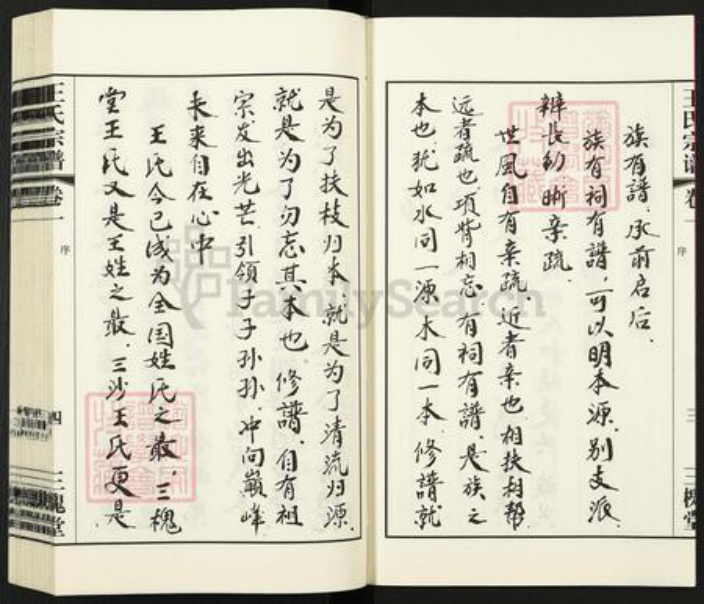 族有譜，承前启后．
族有祠有譜，可以明本源．别支派．
辨长幼晰亲疏．
世风自有亲疏 近者亲也 相扶相帮
远者疏也 项背相忘．有祠有譜．是族之
本也．犹如水同一源 木同一本．修譜就
王氏宗譜
卷一
序
三
三槐堂
是为了扶枝归本．就是为了清流归源．
就是为了勿忘其本也．修譜．自有祖
宗发出光芒．引领子子孙孙．冲向巅峰
未来自在心中
王氏今已成为全国姓氏之最．三槐
堂王氏又是王姓之最．三沙王氏更是
王氏宗譜
卷一
序
四
三槐堂
FamilySearch